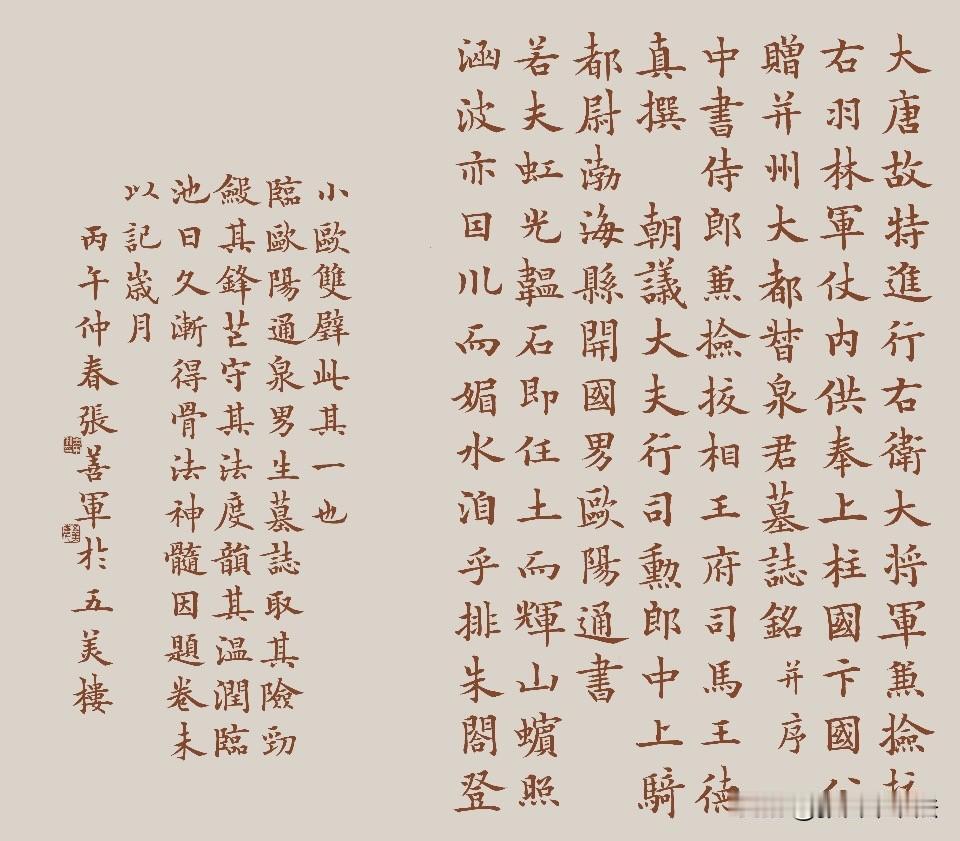 大唐故特進行右衛大将軍兼撿挍
右羽林軍仗内供奉上柱國卞國公
贈并州大都督泉君墓誌銘 并序
中書侍郎兼撿挍相王府司馬王德
真撰 朝議大夫行司勳郎中上騎
都尉渤海縣開國男歐陽通書
若夫虹光韞石即任土而輝山蠙照
涵波亦囙川而媚水洎乎排朱閣登
小歐雙璧此其一也
臨歐陽通泉男生墓誌取其險勁
斂其鋒芒守其法度韻其温潤臨
池日久漸得骨法神髓因題卷末
以記歲月
丙午仲春張善軍於五美樓